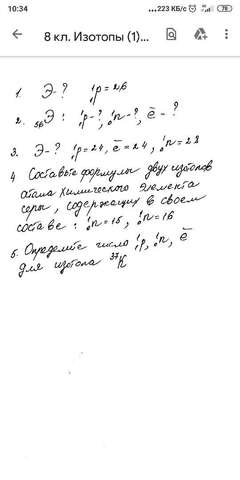 10:34
224 КБ/с
78
8 кл. Изотопы (1)...
1. Э-? ¹₁p = 26
2. ₅₆Э : ¹₁p-?, ¹₀n-?, ē-?
3. Э-? ¹₁p = 24, ē = 24, ¹₀n = 28
4 Составьте формулы двух изотопов
атома химического элемента
серы, содержащих в своем
составе : ¹₀n = 15, ¹₀n = 16
5. Определите число ¹₁p, ¹₀n, ē
для изотопа ³⁷K